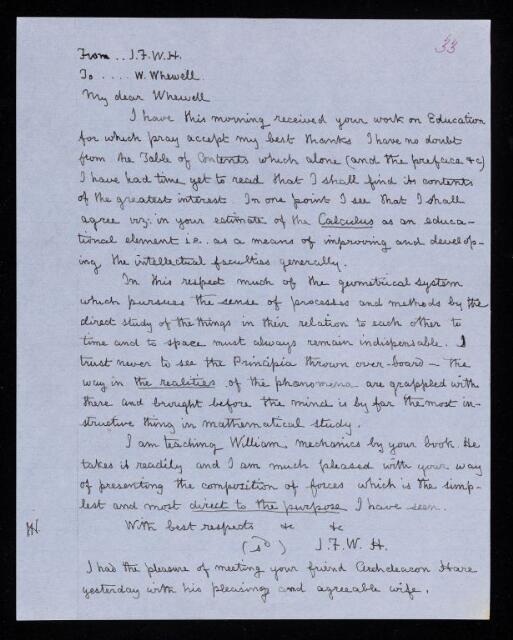 33
From .. J.F.W.H.
To .... W. Whewell.
My dear Whewell
I have this morning received your work on Education
for which pray accept my best thanks I have no doubt
from the Table of Contents which alone (and the preface &c)
I have had time yet to read that I shall find its contents
of the greatest interest. In one point I see that I shall
agree viz: in your estimate of the Calculus as an educa-
tional element i.e. as a means of improving and develop-
ing the intellectual faculties generally.
In this respect much of the geometrical system
which pursues the sense of processes and methods by the
direct study of the things in their relation to each other to
time and to space must always remain indispensable. I
trust never to see the Principia thrown over-board – the
way in the realities of the phænomena are grappled with
there and brought before the mind is by far the most in-
structive thing in mathematical study.
I am teaching William mechanics by your book. He
takes it readily and I am much pleased with your way
of presenting the composition of forces which is the simp-
lest and most direct to the purpose I have seen.
With best respects &c &c
(sd) J.F.W.H.
I had the pleasure of meeting your friend Archdeacon Hare
yesterday with his pleasing and agreeable wife.